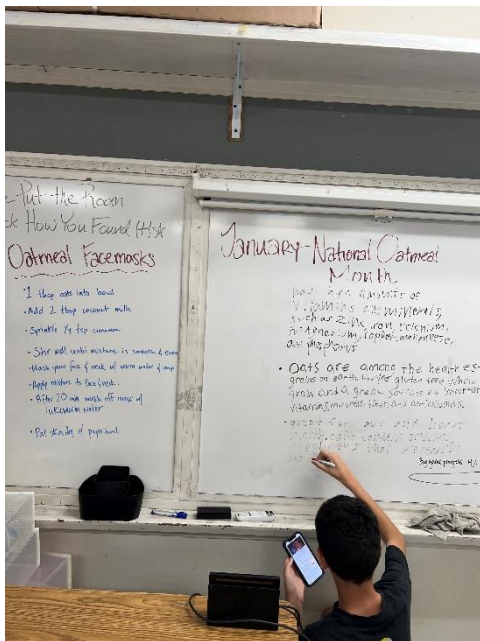 Put the Room
How You Found It!☆
Oatmeal Facemasks
1 tbsp oats into bowl
Add 2 tbsp coconut milk
Sprinkle 1/4 tsp cinnamon
Stir well until mixture is smooth & even
Wash your face & neck w/ warm water & soap
Apply mixture to face & neck
After 20 min wash off mask w/
lukewarm water
Pat skin dry w/ paper towel
January-National Oatmeal
Month
has high amounts of
vitamins and minerals,
such as zinc, iron, selenium,
magnesium, copper, manganese,
and phosphorus
• Oats are among the healthiest
grains on earth. They're gluten free whole
grain and a great source of important
vitamins, minerals, fiber, and antioxidants.
oats contain